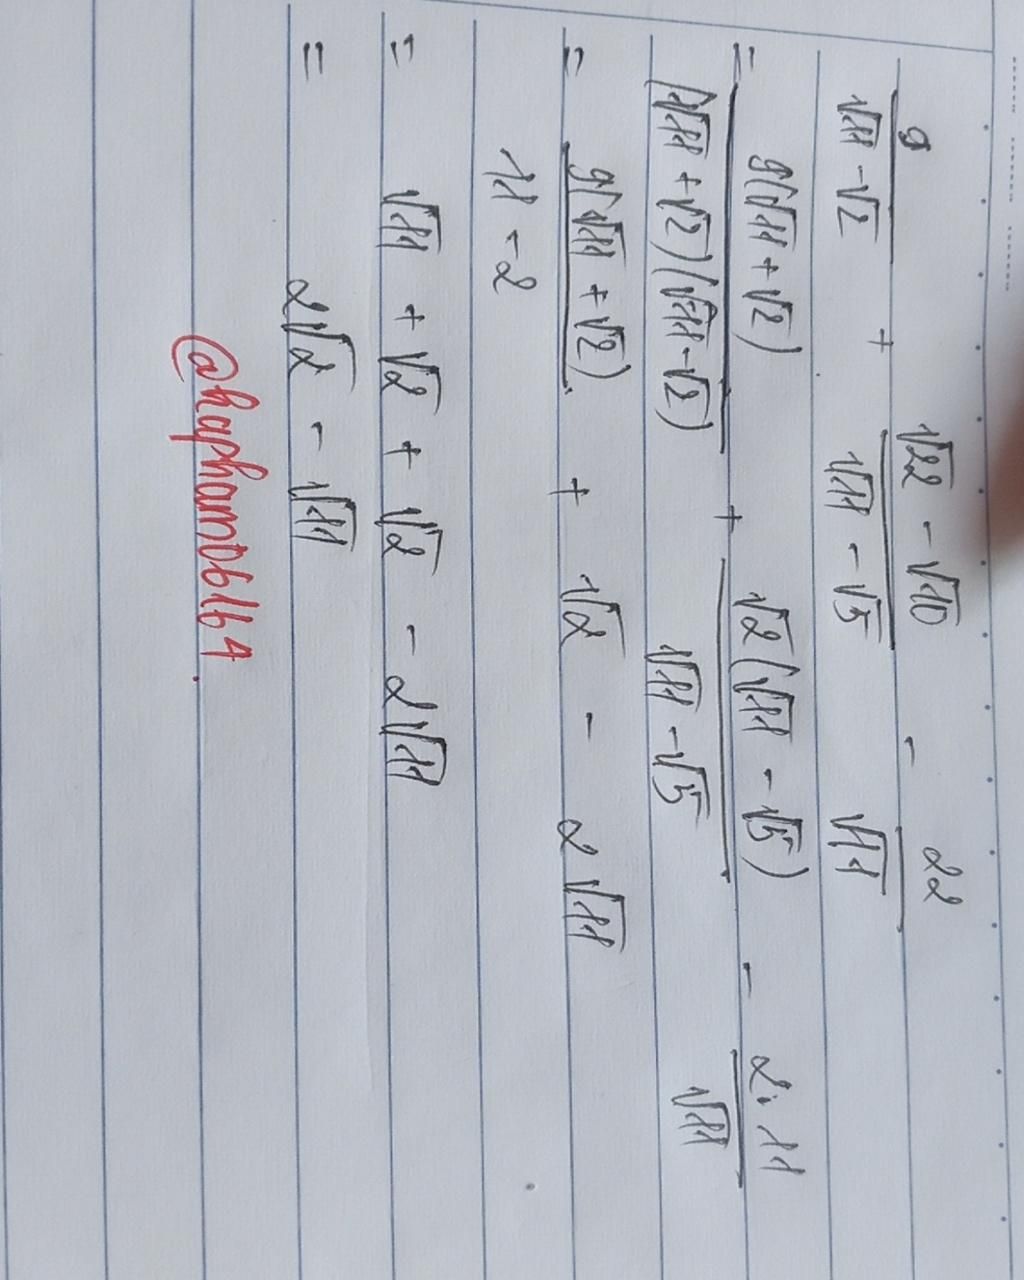 9/(√11 - √2) + (√22 - √10)/(√11 - √5) - 22/√11
= 9(√11 + √2)/((√11 + √2)(√11 - √2)) + √2(√11 - √5)/(√11 - √5) - 2.11/√11
= 9(√11 + √2)/(11 - 2) + √2 - 2√11
= √11 + √2 + √2 - 2√11
= 2√2 - √11
@hapham06164